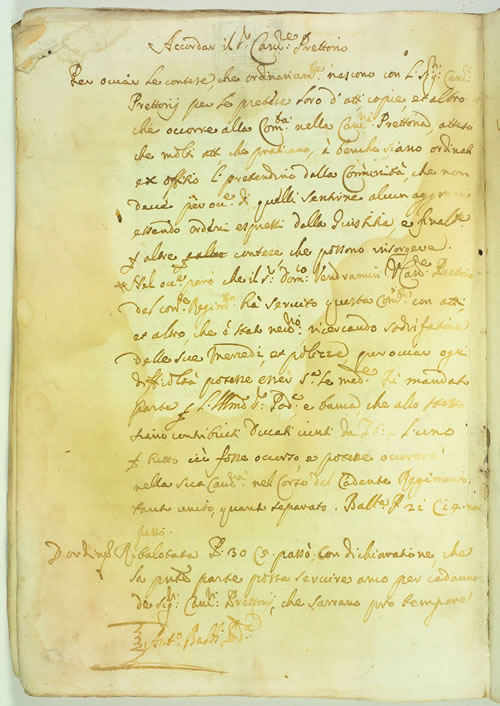 Accordar il s.r Canc.re Prettorio
Per occiar le contese che ordinariam.te nascono con L. Sig.ri Canc.ri
Prettorij per le pretese loro d'atti copie, et altro
che occorre alla Com.tà nella Canc.ria Prettoria, atteso
che molti atti che praticano, à benche siano ordinati
ex offitio li pretendino dalla Comunità, che non
deve di quelli sentirne alcun aggravio
essendo ordini espretti dalla Giustitia e final.te
altre contese che possono risorgere.
Nel però che il s.r Dom.co Vendramin Canc.re Pretorio
del Regim.to hà servito questa Com.tà con atti,
et altro, che è stato ricercando sodisfatione
delle sue mercedi, et polizze, per occiar ogni
difficoltà potesse esser Fù mandato
parte Ill.mo s.r Pod.tà e banca, che allo stesso
siano contribuiti Ducati vinti da l'uno
tutto ciò fosse occorso, e potesse occorrere
nella sua Canc.ria nel Corso del Cadente Reggimento
tant unito, quant separato. Ball.ta P. 21 C. 14 non
passò.
D'ordine Ribalotata P. 30 C. 5 passò, con dichiaratione che
la pnte parte possa servire anco per cadauno
de sig.ri Canc.ri Prettorij, che saranno pro tempore
Ant.o Balbi Pod.tà